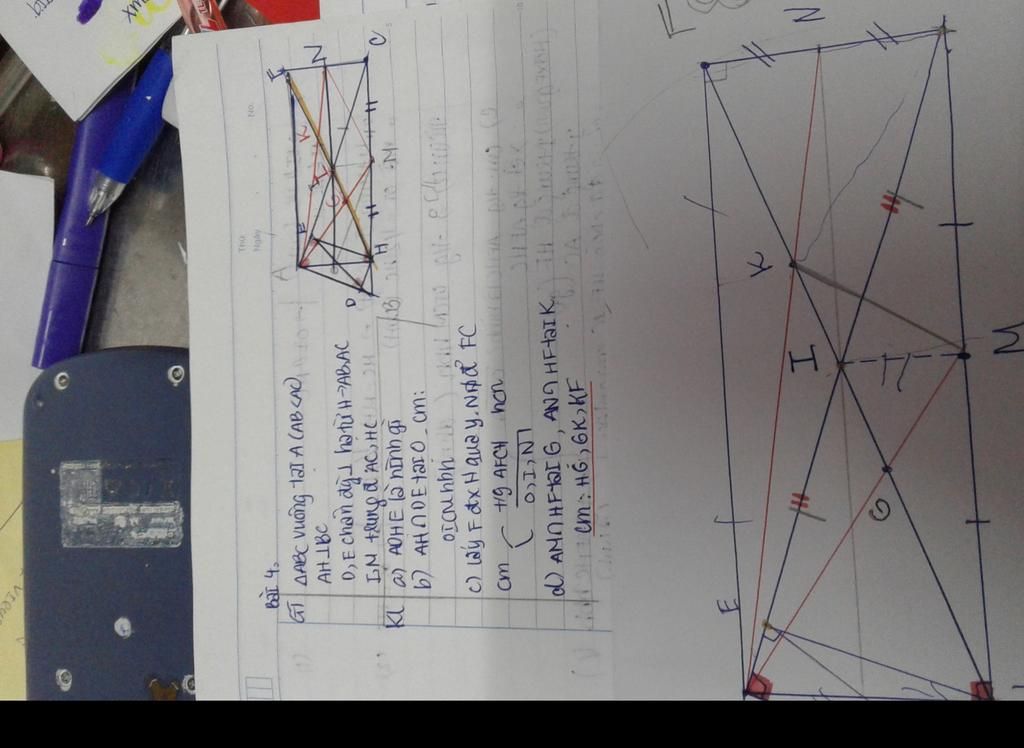 Bài 4.
GT ΔABC vuông tại A (AB<AC)
AH⊥BC
D, E chân đg⊥ hạ từ H→AB, AC
I, M trung đ' AC, HC
KL a) ADHE là hình gì
b) AH∩DE tại O. cm:
c) Lấy F đx H qua y. N trđ' FC
cm tg AFCH hcn
O, I, N
d) AM∩HF tại G, AN∩HF tại K
cm: HG, GK, KF
Thứ
Ngày
No.
A
F
N
C
K
I
G
E
H
H
M
H
D
B
N
K
I
M
G
E